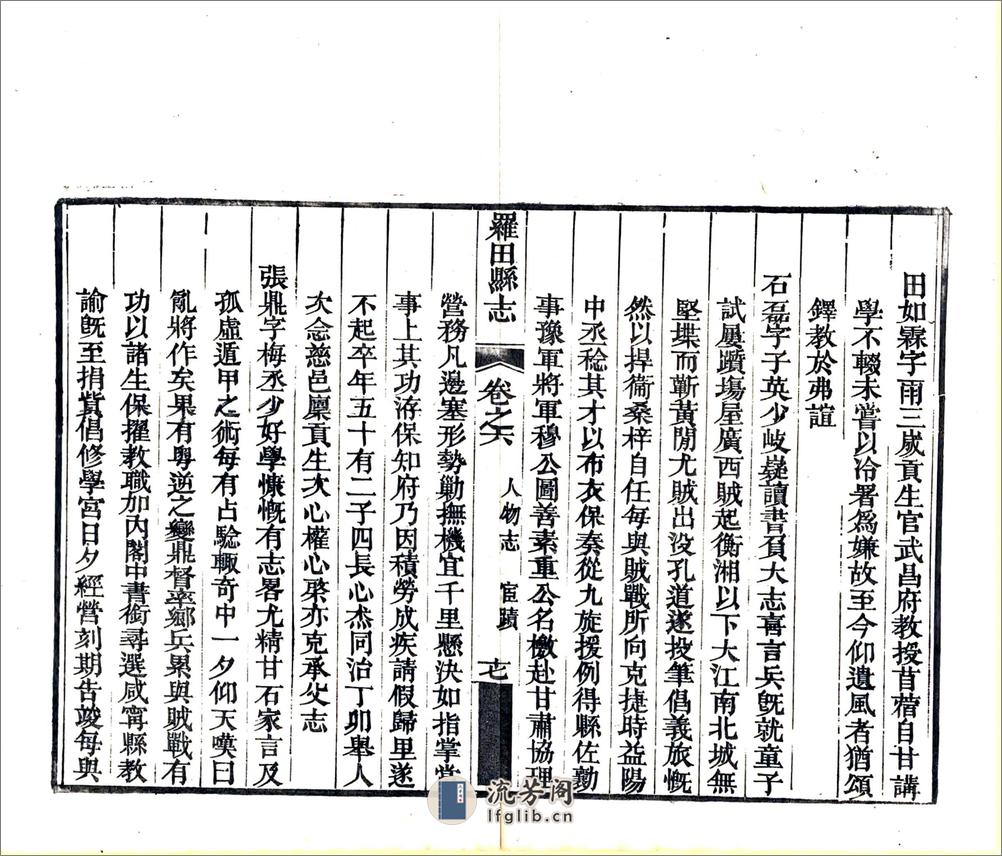 田如霖字雨三歲貢生官武昌府教授苜蓿自甘講
學不輟未嘗以冷署爲嫌故至今仰遺風者猶頌
鐸教於弗諠
石磊字子英少岐嶷讀書負大志喜言兵旣就童子
試屢躓塲屋廣西賊起衡湘以下大江南北城無
堅堞而蘄黃閒尤賊出没孔道遂投筆倡義旅慨
然以捍衞桑梓自任每與賊戰所向克捷時益陽
中丞稔其才以布衣保奏從九旋援例得縣佐勤
事豫軍將軍穆公圖善素重公名檄赴甘肅協理
羅田縣志
卷之六
人物志 宦蹟
營務凡邊塞形勢勦撫機宜千里懸決如指掌當
事上其功洊保知府乃因積勞成疾請假歸里遂
不起卒年五十有二子四長心杰同治丁卯舉人
次念慈邑廩貢生次心權心棨亦克承父志
張鼎字梅丞少好學慷慨有志畧尤精甘石家言及
孤虛遁甲之術每有占驗輙奇中一夕仰天嘆曰
亂將作矣果有粵逆之變鼎督率鄉兵累與賊戰有
功以諸生保擢教職加內閣中書銜尋選咸甯縣教
諭旣至捐貲倡修學宮日夕經營刻期告竣每與
流芳阁
lfglib.cn